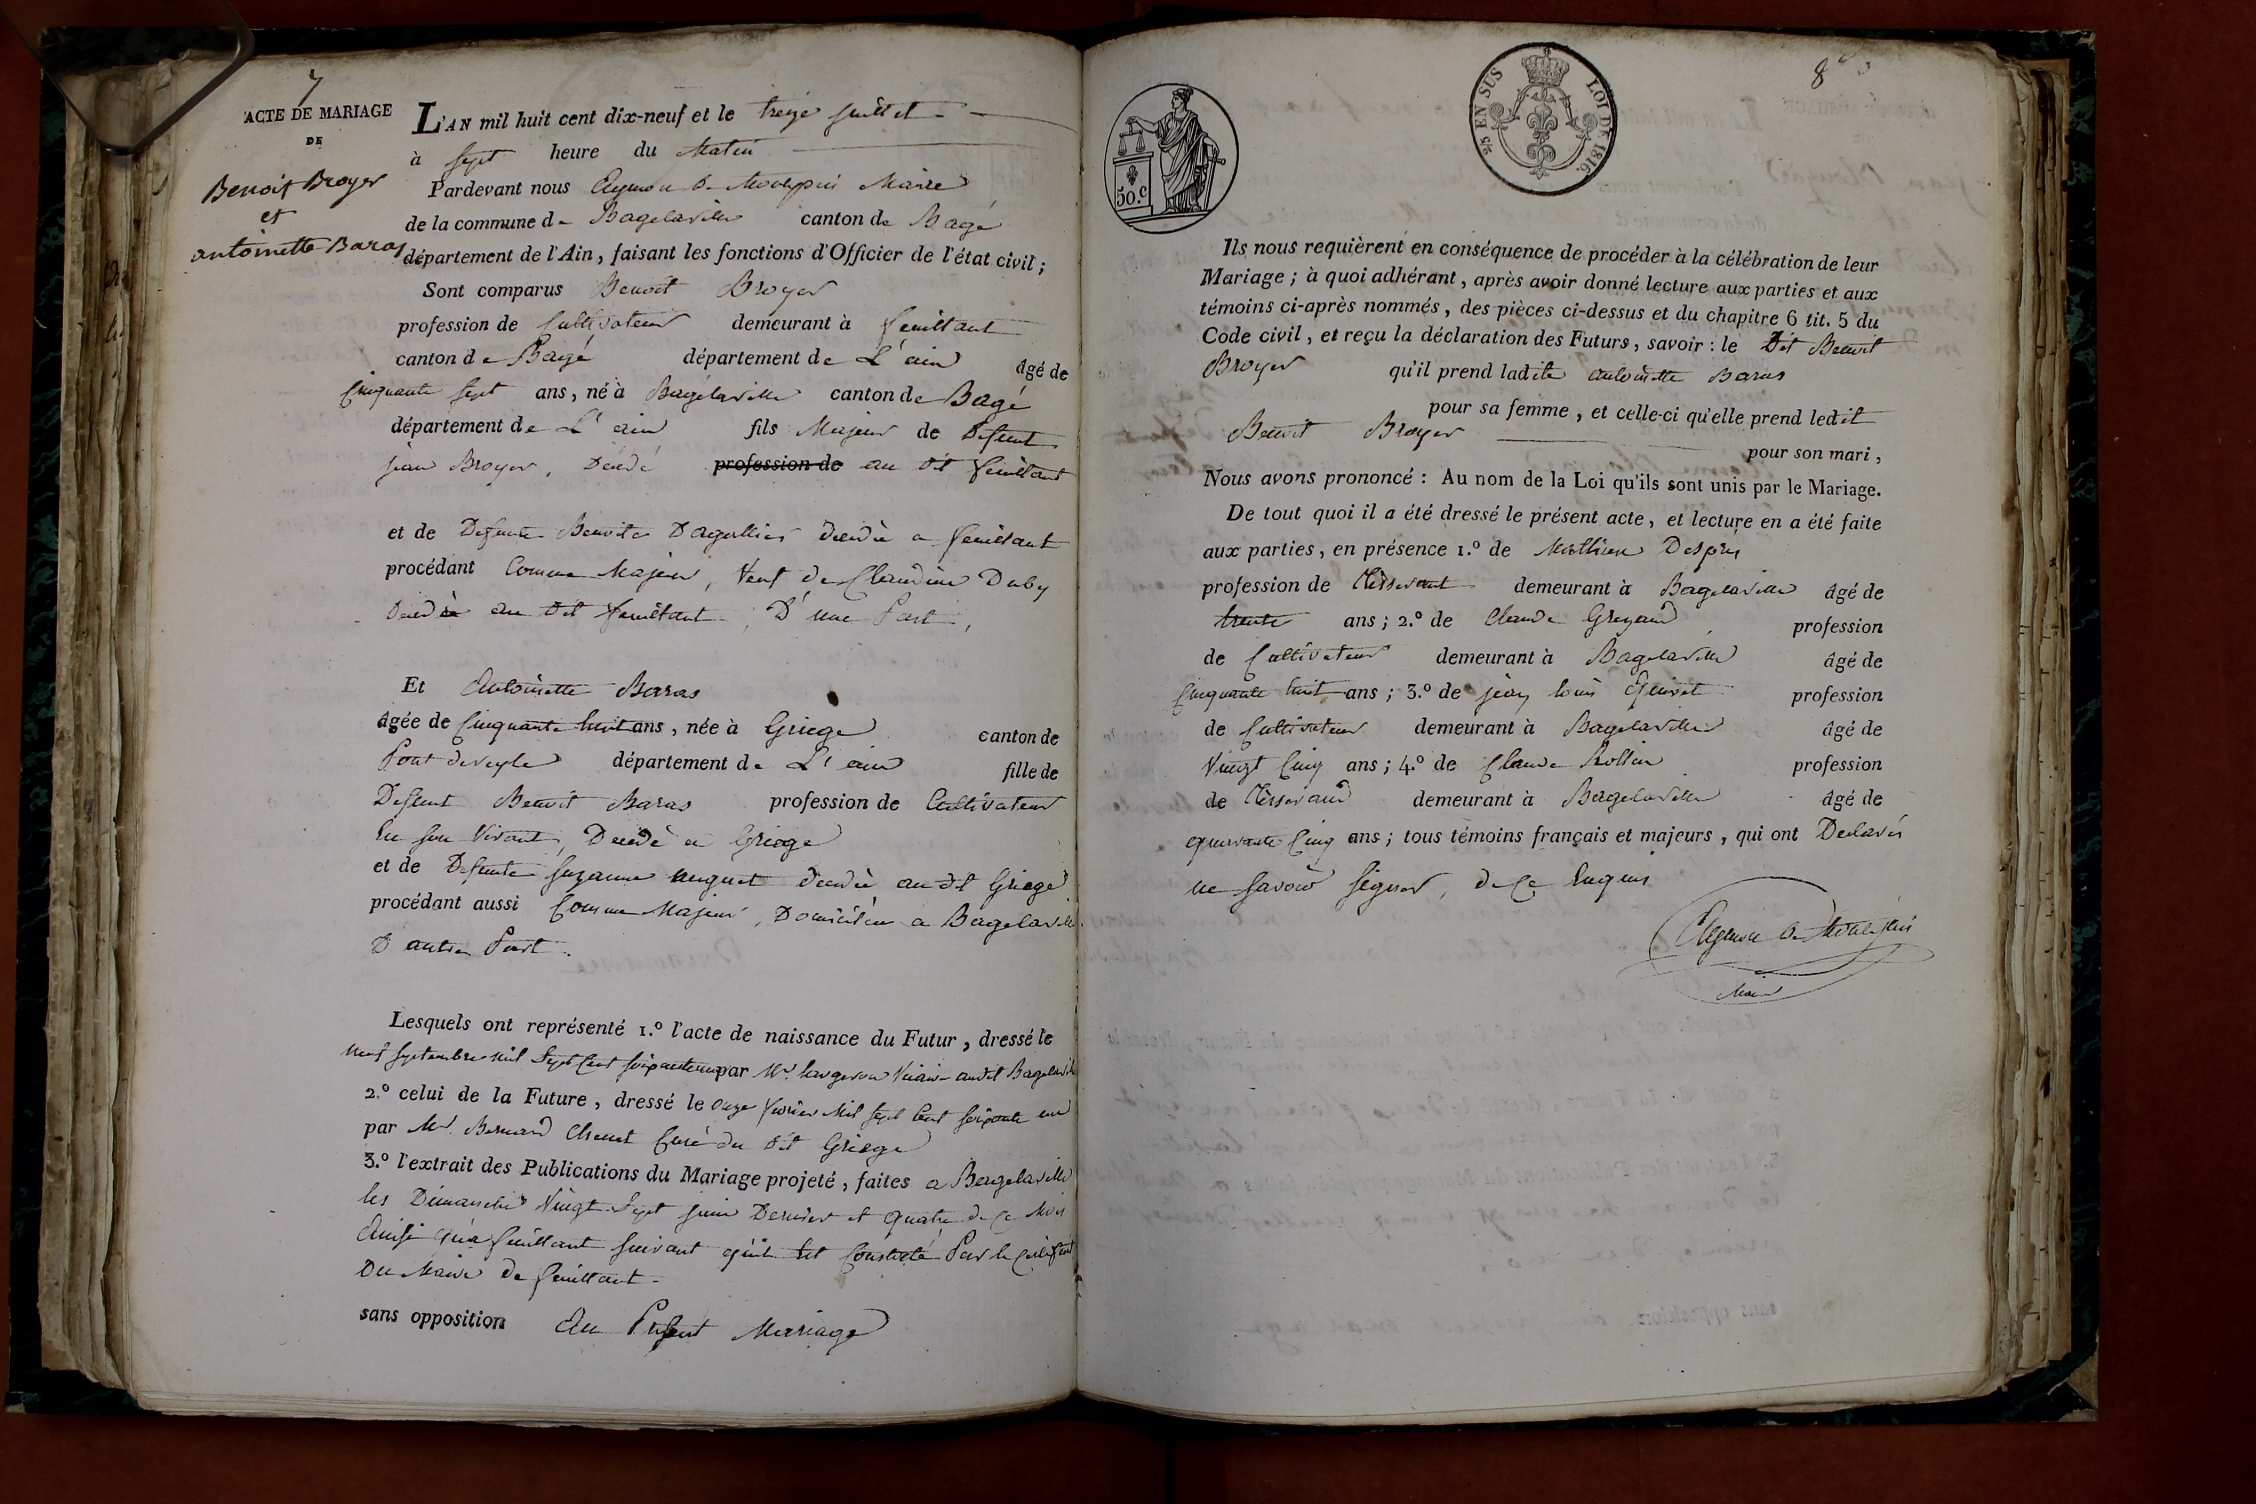 7
ACTE DE MARIAGE
DE
Benoit Broyer
et
antoinette Baras
L'AN mil huit cent dix-neuf et le treize juillet
à sept heure du Matin
Pardevant nous Aymon de Montepin Maire
de la commune de Bagelaville canton de Bagé
département de l'Ain, faisant les fonctions d'Officier de l'état civil ;
Sont comparus Benoit Broyer
profession de Cultivateur demeurant à feuillant
canton de Bagé département de L'ain âgé de
Cinquante sept ans, né à Bagélaville canton de Bagé
département de L'ain fils Majeur de Defunt
jean Broyer, Décédé profession de au dit feuillant
et de Defunte Benoite Dagallier décédée a feuillant
procédant Comme Majeur, Veuf de Claudine Duby
Décédée au dit feuillant, D'une Part,
Et Antoinette Baras
âgée de Cinquante huit ans, née à Griege canton de
Pont deveyle département de L'ain fille de
Defunt Benoit Baras profession de Cultivateur
En son Vivant, Decedé a Griege
et de Defunte Suzanne decedée au dit Griege
procédant aussi Comme Majeur, Domiciliée a Bagelaville
D'autre Part.
Lesquels ont représenté 1.º l'acte de naissance du Futur, dressé le
neuf septembre mil sept cent soixante par Mr. Vicaire audit Bagelaville
2.º celui de la Future, dressé le onze fevrier Mil sept cent soixante un
par Mr. Bernard Curé du dit Griege
3.º l'extrait des Publications du Mariage projeté, faites a Bagelaville
les Dimanches Vingt Sept juin Dernier et quatre de ce Mois
Ainsi qu'a feuillant suivant qu'il est Constaté Par le Certificat
Du Maire de feuillant
sans opposition Au Présent Mariage
50.C
25 EN SUS LOI DE 1816.
8
Ils nous requièrent en conséquence de procéder à la célébration de leur
Mariage ; à quoi adhérant, après avoir donné lecture aux parties et aux
témoins ci-après nommés, des pièces ci-dessus et du chapitre 6 tit. 5 du
Code civil, et reçu la déclaration des Futurs, savoir : le Dit Benoit
Broyer qu'il prend ladite Antoinette Baras
pour sa femme, et celle-ci qu'elle prend ledit
Benoit Broyer pour son mari,
Nous avons prononcé : Au nom de la Loi qu'ils sont unis par le Mariage.
De tout quoi il a été dressé le présent acte, et lecture en a été faite
aux parties, en présence 1.º de Mathieu Desprès
profession de Tisserant demeurant à Bagelaville âgé de
trente ans ; 2.º de Claude profession
de Cultivateur demeurant à Bagelaville âgé de
Cinquante huit ans ; 3.º de jean louis profession
de Cultivateur demeurant à Bagelaville âgé de
Vingt Cinq ans ; 4.º de Claude Rollin profession
de Tisserand demeurant à Bagelaville âgé de
quarante Cinq ans ; tous témoins français et majeurs, qui ont Declarés
ne savoir signer, de ce Enquis
Aymon de Montepin
Maire